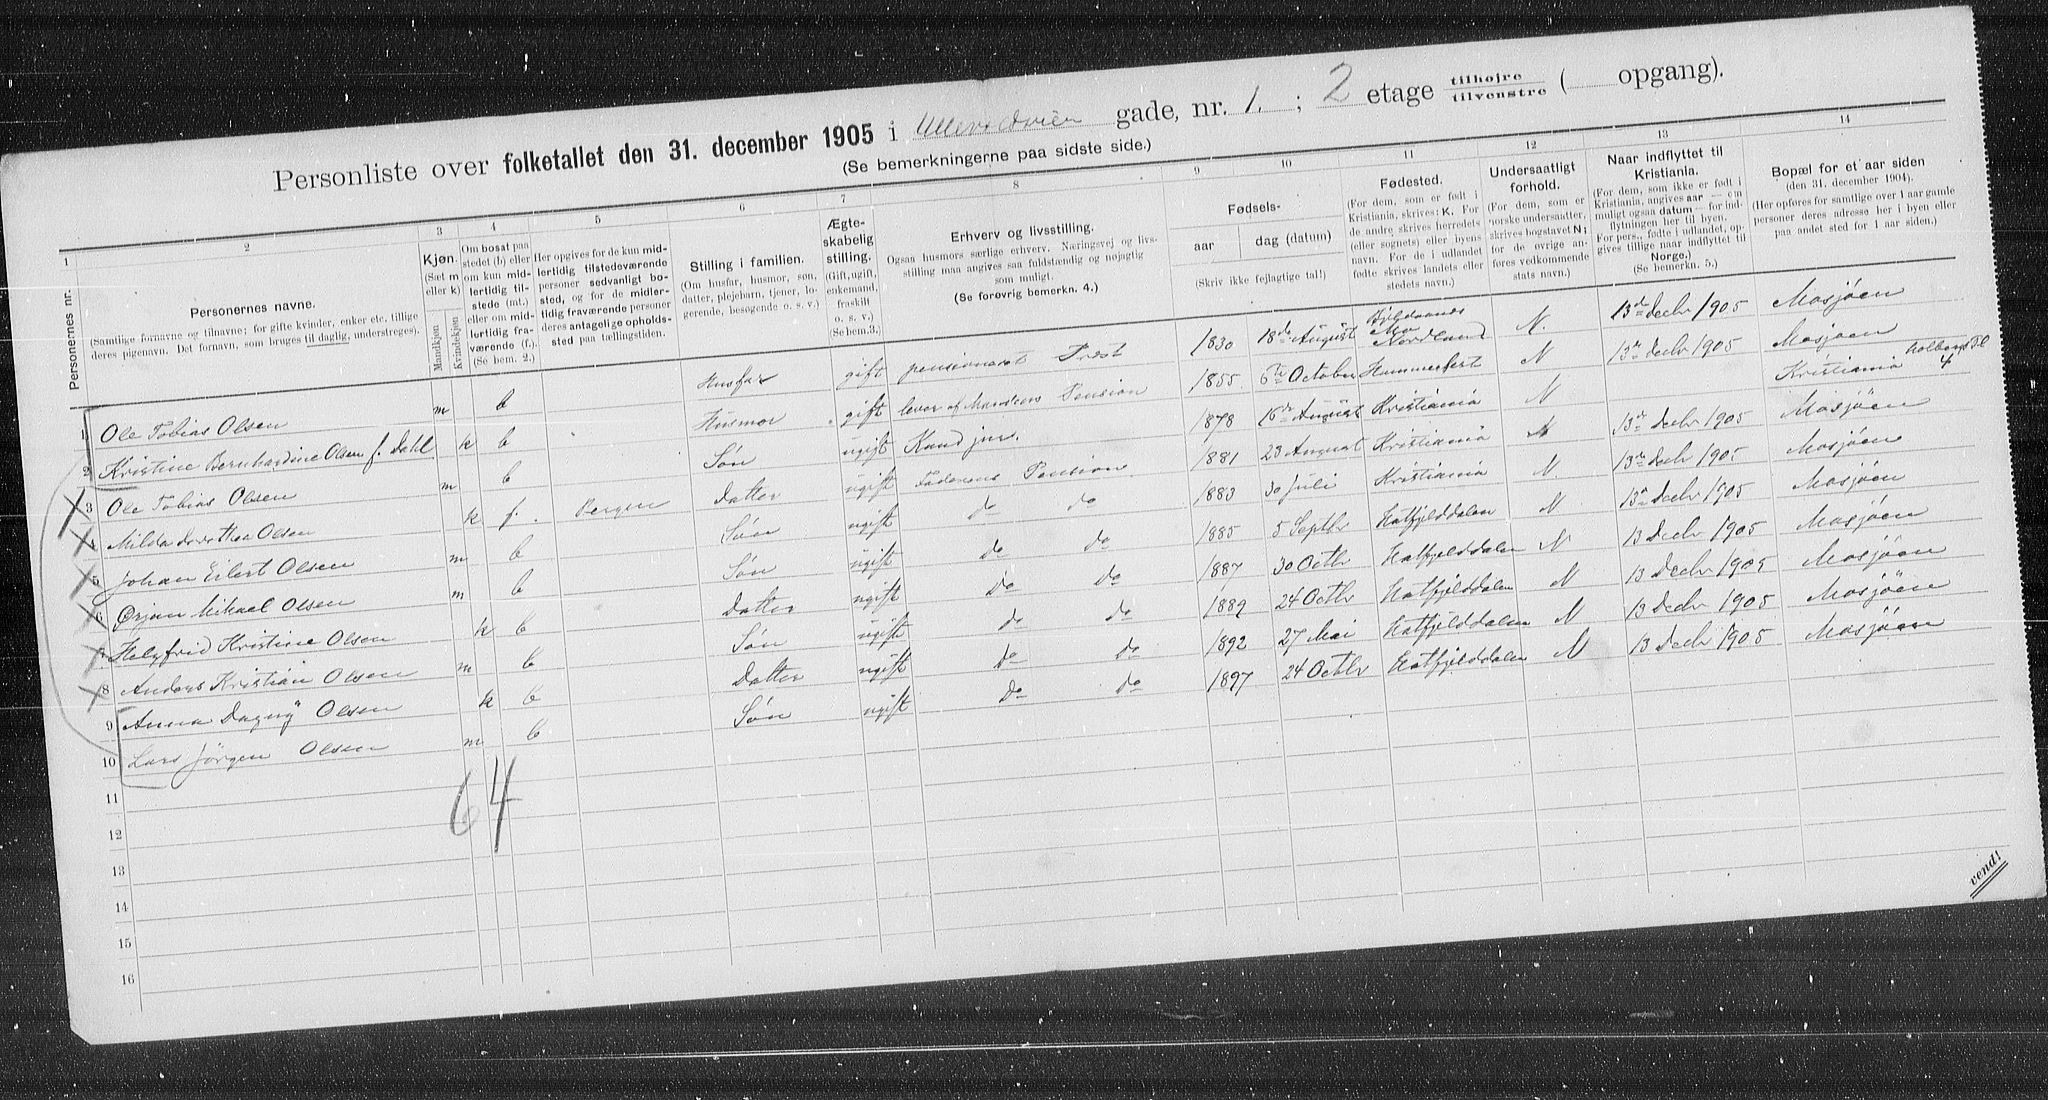 Personliste over folketallet den 31. december 1905 i Ullevoldsveien gade, nr. 1. ; 2 etage tilhøjre tilvenstre ( opgang).
(Se bemerkningerne paa sidste side.)
1 2 3 4 5 6 7 8 9 10 11 12 13 14
Personernes nr.
Personernes navne.
(Samtlige fornavne og tilnavne; for gifte kvinder, enker etc. tillige
deres pigenavn. Det fornavn, som bruges til daglig, understreges).
Kjøn.
(Sæt m
eller k)
Mandkjøn
Kvindekjøn
Om bosat paa
stedet (b) eller
om kun mid-
lertidig til-
stede (mt.)
eller om mid-
lertidig fra-
værende (f.).
(Se bem. 2.)
Her opgives for de kun mid-
lertidig tilstedeværende
personer sedvanligt bo-
sted, og for de midler-
tidig fraværende personer
deres antagelige opholds-
sted paa tællingstiden.
Stilling i familien.
(Om husfar, husmor, søn,
datter, plejebarn, tjener, lo-
gerende, besøgende o. s. v.)
Ægte-
skabelig
stilling.
(Gift, ugift,
enkemand,
fraskilt
o. s. v.)
(Se bem.3.)
Erhverv og livsstilling.
Ogsaa husmors særlige erhverv. Næringsvej og livs-
stilling maa angives saa fuldstændig og nøjagtig
som muligt.
(Se forøvrig bemerkn. 4.)
Fødsels-
aar
dag (datum)
(Skriv ikke fejlagtige tal!)
Fødested.
(For dem, som er født i
Kristiania, skrives: K. For
de andre skrives herredets
(eller sognets) eller byens
navn. For de i udlandet
fødte skrives landets eller
stedets navn.)
Undersaatligt
forhold.
(For dem, som er
norske undersaatter,
skrives bogstavet N;
for de øvrige an-
føres vedkommende
stats navn.)
Naar indflyttet til
Kristiania.
(For dem, som ikke er født i
Kristiania, angives aar — om
muligt ogsaa datum — for ind-
flytningen her til byen.
For pers., fødte i udlandet, op-
gives tillige naar indflyttet til
Norge.)
(Se bemerkn. 5.)
Bopæl for et aar siden
(den 31. december 1904).
(Her opføres for samtlige over 1 aar gamle
personer deres adresse her i byen eller
paa andet sted for 1 aar siden.)
1 Ole Tobias Olsen m b Husfar gift pensioneret Prest 1830 18de August Mo Nordland N. 13de Decbr 1905 Mosjøen
2 Kristine Bernhardine Olsen f. Dahl k b Husmor gift lever af Mandens Pension 1855 6te October Hammerfest N 13de Decbr 1905 Mosjøen
3 Ole Tobias Olsen m b Søn ugift Kand jur. 1878 16de August Kristiania N Kristiania Holbergs Pl 4
4 Milda Dorothea Olsen k f. Bergen Datter ugift Faderens Pension 1881 23 August Kristiania N 13de Decbr 1905 Mosjöen
5 Johan Eilert Olsen m b Søn ugift do do 1883 30 Juli Kristiania N 13de Decbr 1905 Mosjöen
6 Ørjan Mikael Olsen m b Søn ugift do do 1885 5 Septbr Hatfjelddalen N 13de Decbr 1905 Mosjöen
7 Helgfrid Kristine Olsen k b Datter ugift do do 1887 30 Octbr Hatfjelddalen N 13 Decbr 1905 Mosjöen
8 Anders Kristian Olsen m b Søn ugift do do 1889 24 Octbr Hatfjelddalen N 13 Decbr 1905 Mosjöen
9 Anna Dagny Olsen k b Datter ugift do do 1892 27 Mai Hatfjelddalen N 13 Decbr 1905 Mosjöen
10 Lars Jörgen Olsen m b Søn ugift do do 1897 24 Octbr Hatfjelddalen N 13 Decbr 1905 Mosjöen
11
12
13
14
15
16
6 4
vend!